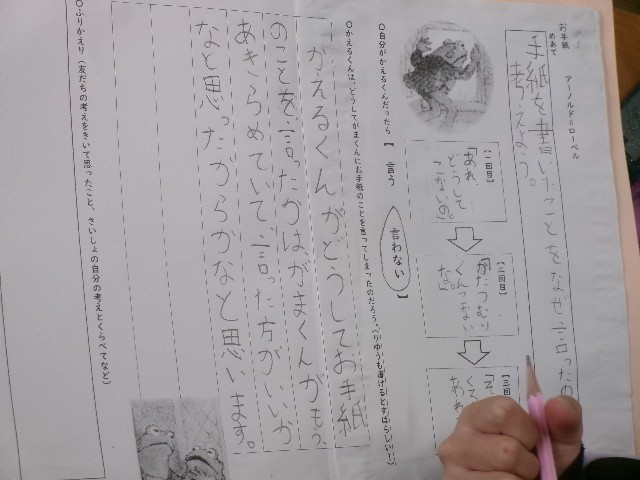 お手紙　アーノルド＝ローベル
めあて
手紙を書いたことをなぜ言ったの
考えよう。
【一回目】
「あれ、
どうして
こないの。」
【二回目】
「かたつむり
くんつかない
なあ。」
【三回目】
○自分がかえるくんだったら【 言う 言わない 】
○かえるくんは、どうしてがまくんにお手紙のことを言ってしまったのだろう。（りゆうも書けるとすばらしい！！）
かえるくんがどうしてお手紙
のことを言ったかは、がまくんがもう、
あきらめていて、言った方がいいか
なと思ったからかなと思います。
○ふりかえり（友だちの考えをきいて思ったこと、さいしょの自分の考えとくらべてなど）